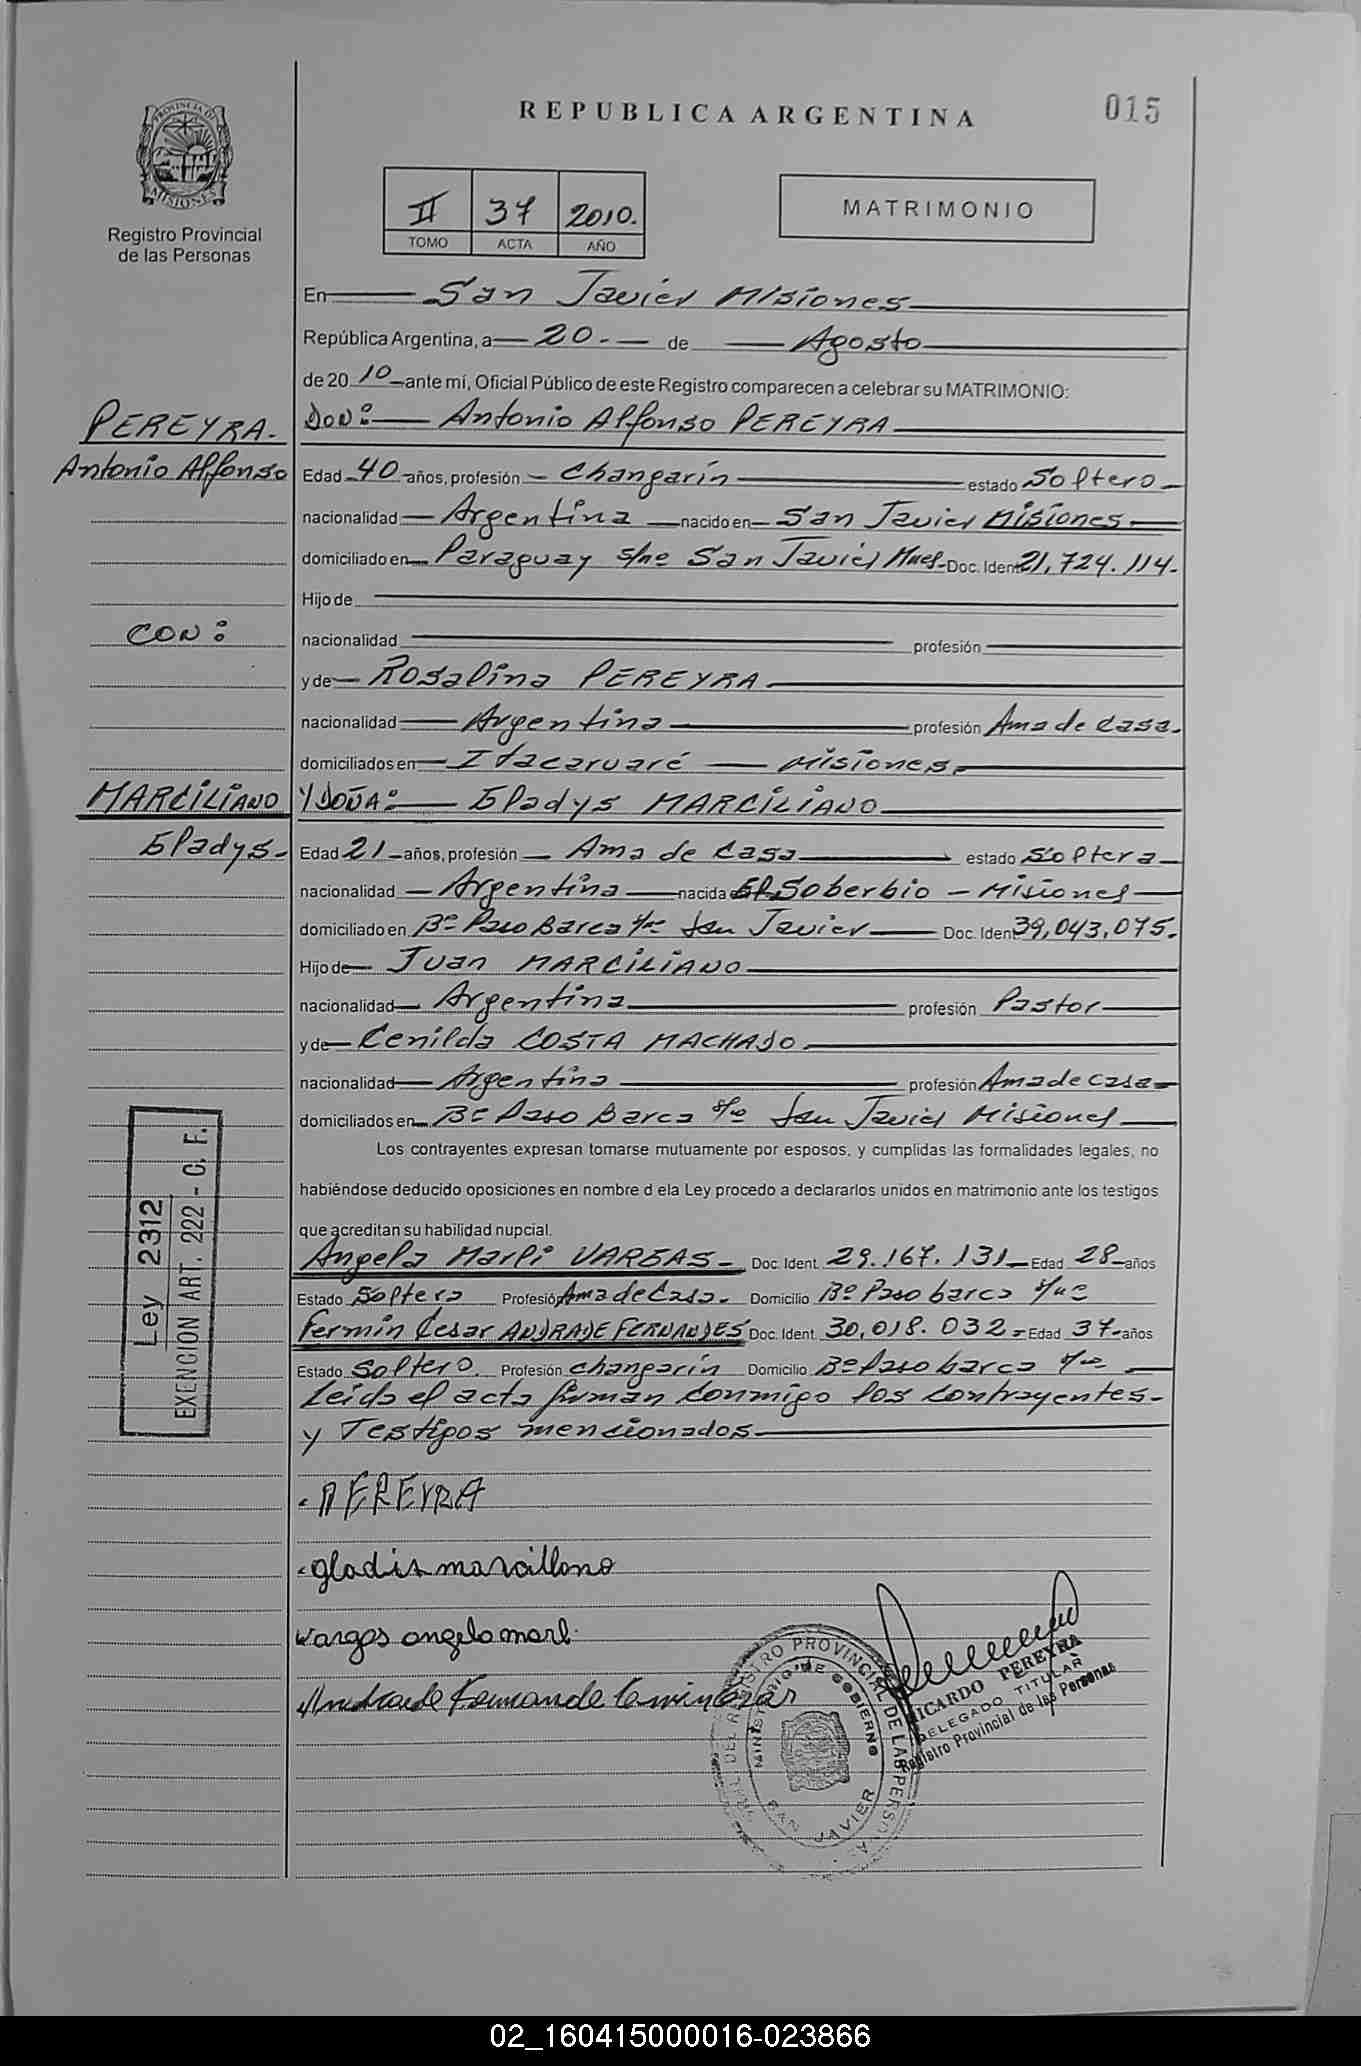 REPUBLICA ARGENTINA
015
PROVINCIA DE
MISIONES
Registro Provincial
de las Personas
II 37 2010.
TOMO ACTA AÑO
MATRIMONIO
En San Javier Misiones
República Argentina, a 20.- de Agosto
de 20 10 ante mí, Oficial Público de este Registro comparecen a celebrar su MATRIMONIO:
PEREYRA.
DON: Antonio Alfonso PEREYRA
Antonio Alfonso
Edad 40 años, profesión Changarín estado Soltero
nacionalidad Argentina nacido en San Javier Misiones
domiciliado en Paraguay s/nº San Javier Mnes. Doc. Ident. 21,724.114.
Hijo de
CON:
nacionalidad profesión
y de Rosalina PEREYRA
nacionalidad Argentina profesión Ama de casa.
domiciliados en Itacaruaré Misiones.
MARCILIANO
Y DOÑA: Gladys MARCILIANO
Gladys
Edad 21 años, profesión Ama de Casa estado soltera
nacionalidad Argentina nacida El Soberbio - Misiones
domiciliado en Bº Paso Barca s/nº San Javier Doc. Ident 39,043,075.
Hijo de Juan MARCILIANO
nacionalidad Argentina profesión Pastor
y de Cenilda COSTA MACHADO
nacionalidad Argentina profesión Ama de casa
domiciliados en Bº Paso Barca s/nº San Javier Misiones
Los contrayentes expresan tomarse mutuamente por esposos, y cumplidas las formalidades legales, no
habiéndose deducido oposiciones en nombre d ela Ley procedo a declararlos unidos en matrimonio ante los testigos
que acreditan su habilidad nupcial.
Ley 2312
EXENCION ART. 222 - C. F.
Angela Marli VARGAS Doc. Ident. 29.167.131 Edad 28 años
Estado Soltera Profesión Ama de Casa. Domicilio Bº Paso barca s/nº
Fermin Cesar ANDRADE FERNANDES Doc. Ident. 30,018.032 Edad 37 años
Estado Soltero. Profesión changarín Domicilio Bº Paso barca s/nº
Leida el acta firman conmigo los contrayentes
y Testigos mencionados
PEREYRA
gladis marcillano
vargas angela marli
Andrade Fernande
REGISTRO PROVINCIAL DE LAS PERSONAS
MINISTERIO DE GOBIERNO
SAN JAVIER
RICARDO PEREYRA
DELEGADO TITULAR
Registro Provincial de las Personas
02_160415000016-023866